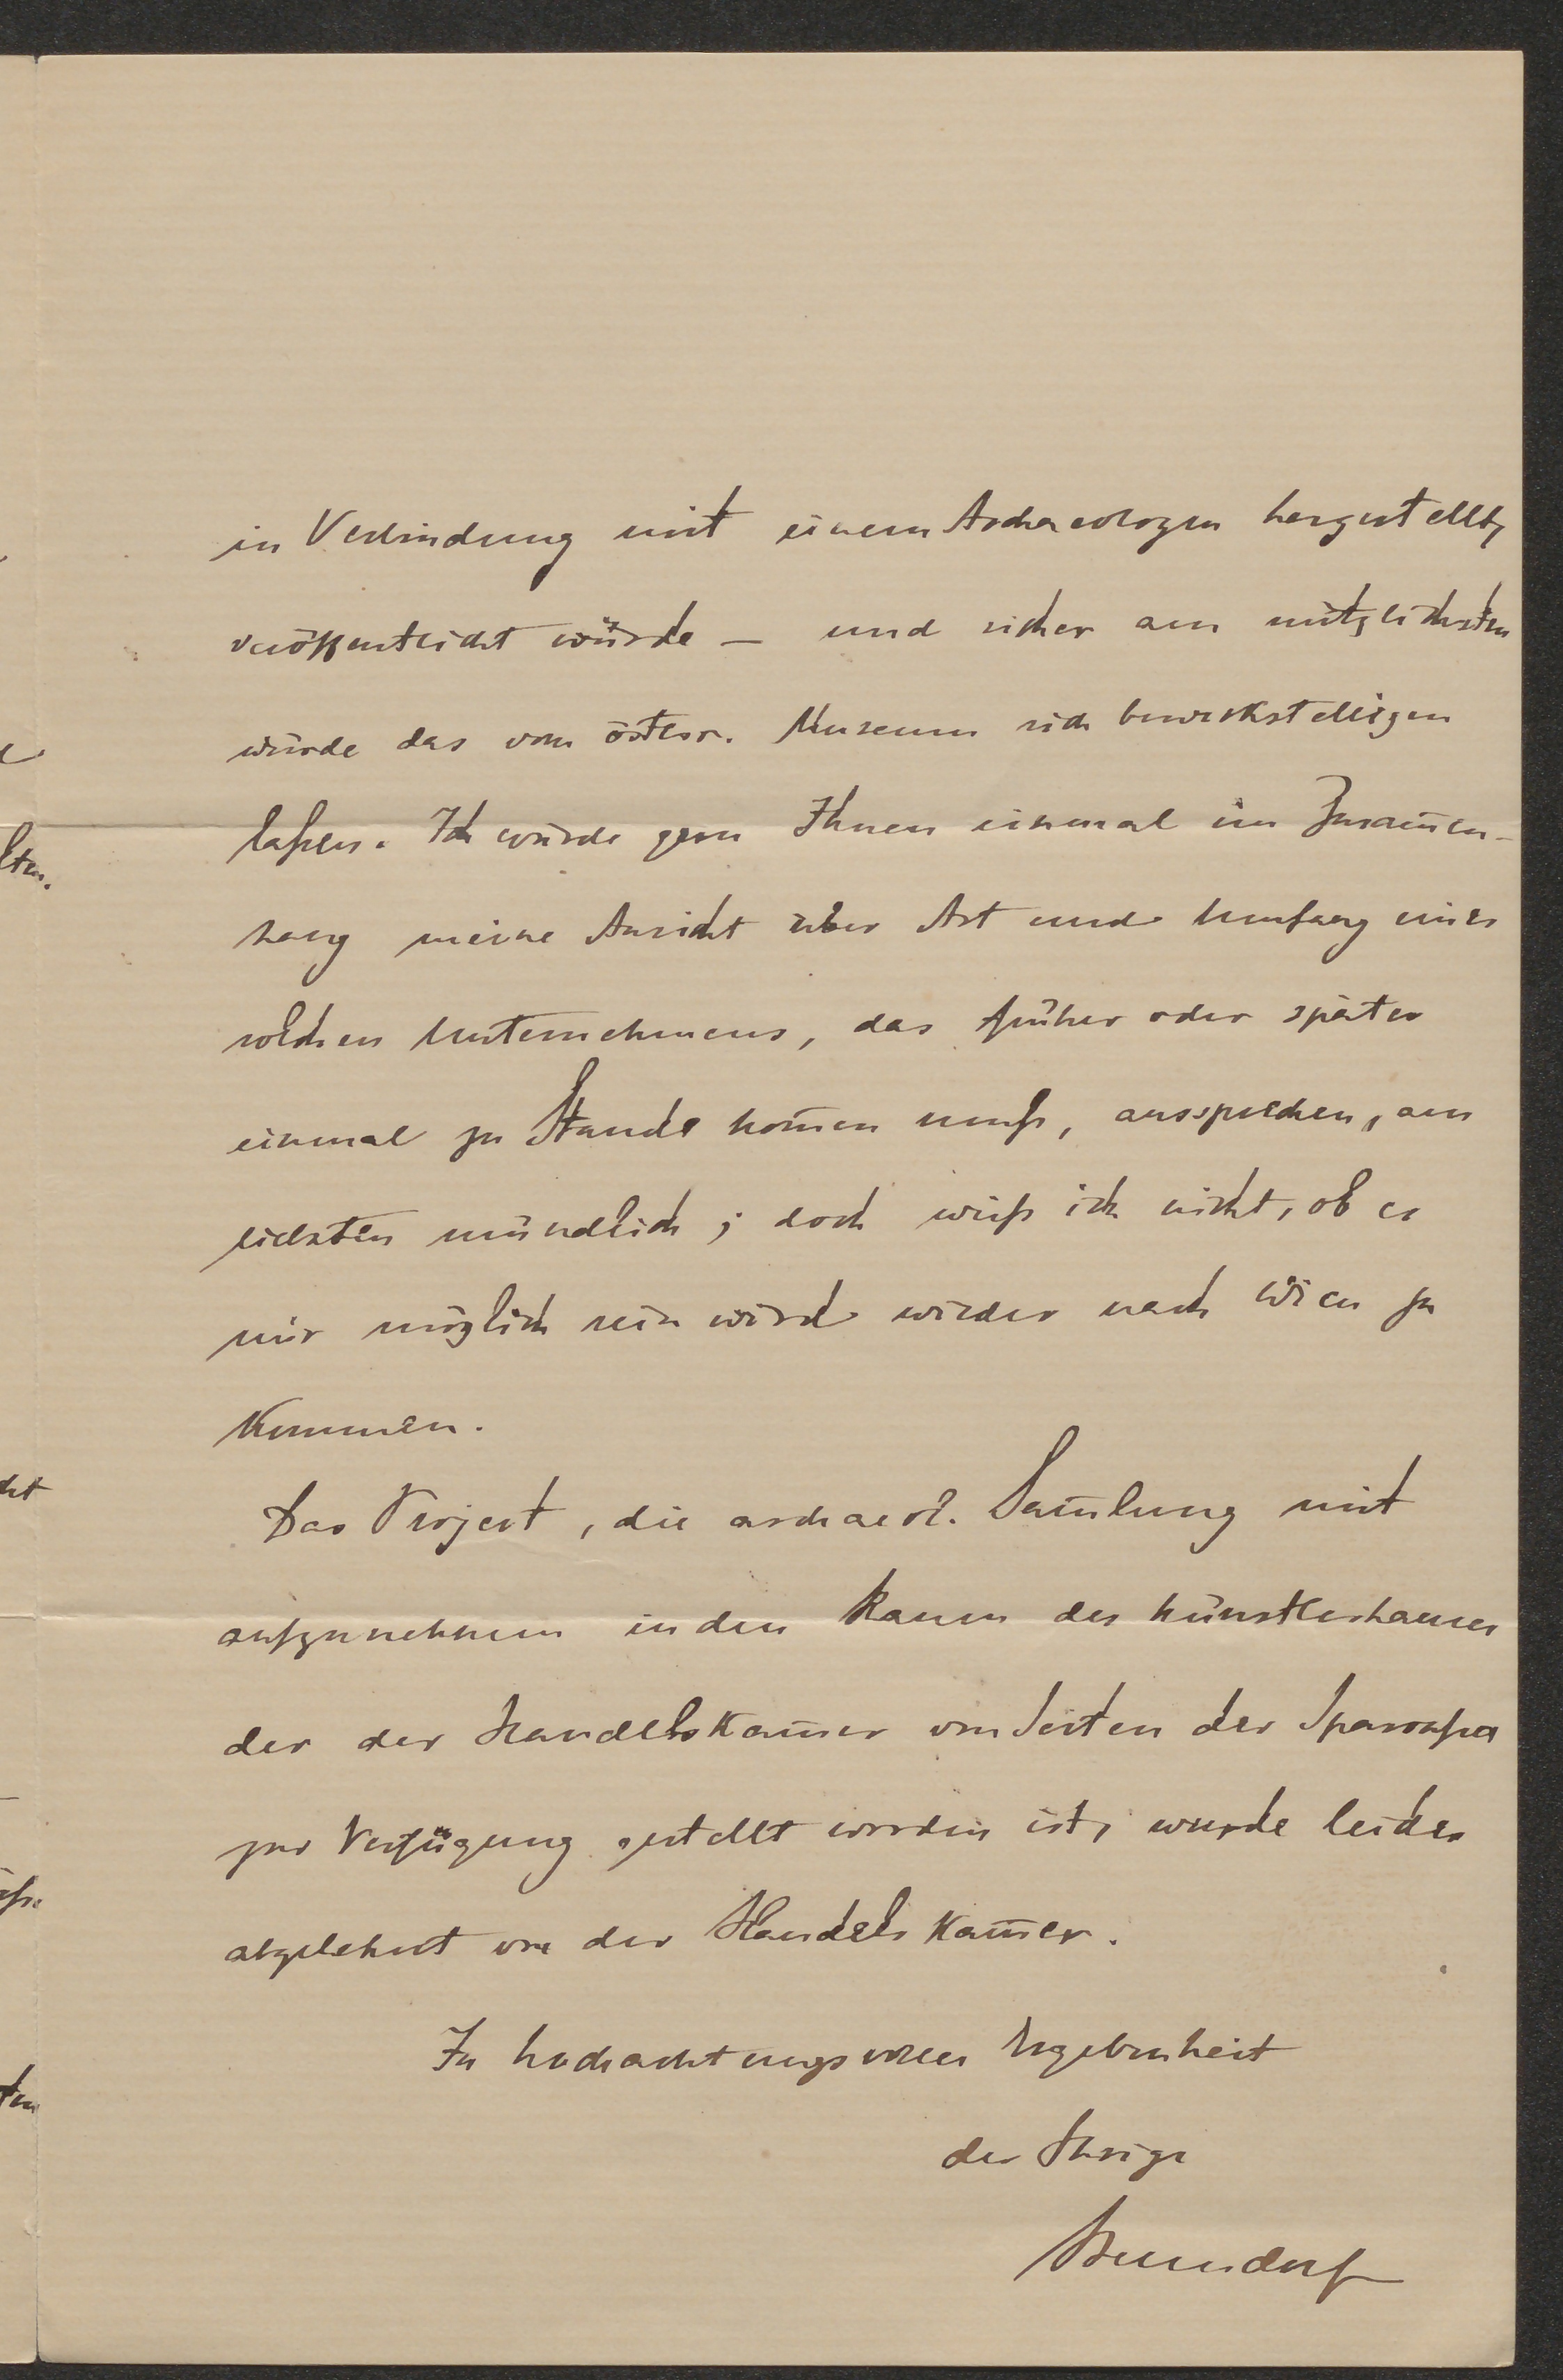 in Verbindung mit einem Archaeologen hergestellt,
veröffentlicht würde — und sicher am nützlichsten
würde das vom österr. Museum sich bewerkstelligen
laßen. Ich würde gern Ihnen einmal im Zusam̄en-
hang meine Ansicht über Art und Umfang eines
solchen Unternehmens, das früher oder später
einmal zu Stande kom̄en muß, aussprechen, am
liebsten mündlich; doch weiß ich nicht, ob es
mir möglich sein wird wieder nach Wien zu
kommen.
Das Project, die archaeol. Sam̄lung mit
aufzunehmen in den Raum des Künstlerhauses
der der Handelskam̄er von Seiten der Sparcassa
zur Verfügung gestellt worden ist, wurde leider
abgelehnt von der Handelskam̄er.
In hochachtungsvoller Ergebenheit
der Ihrige
Benndorf
lten.
cht
ten